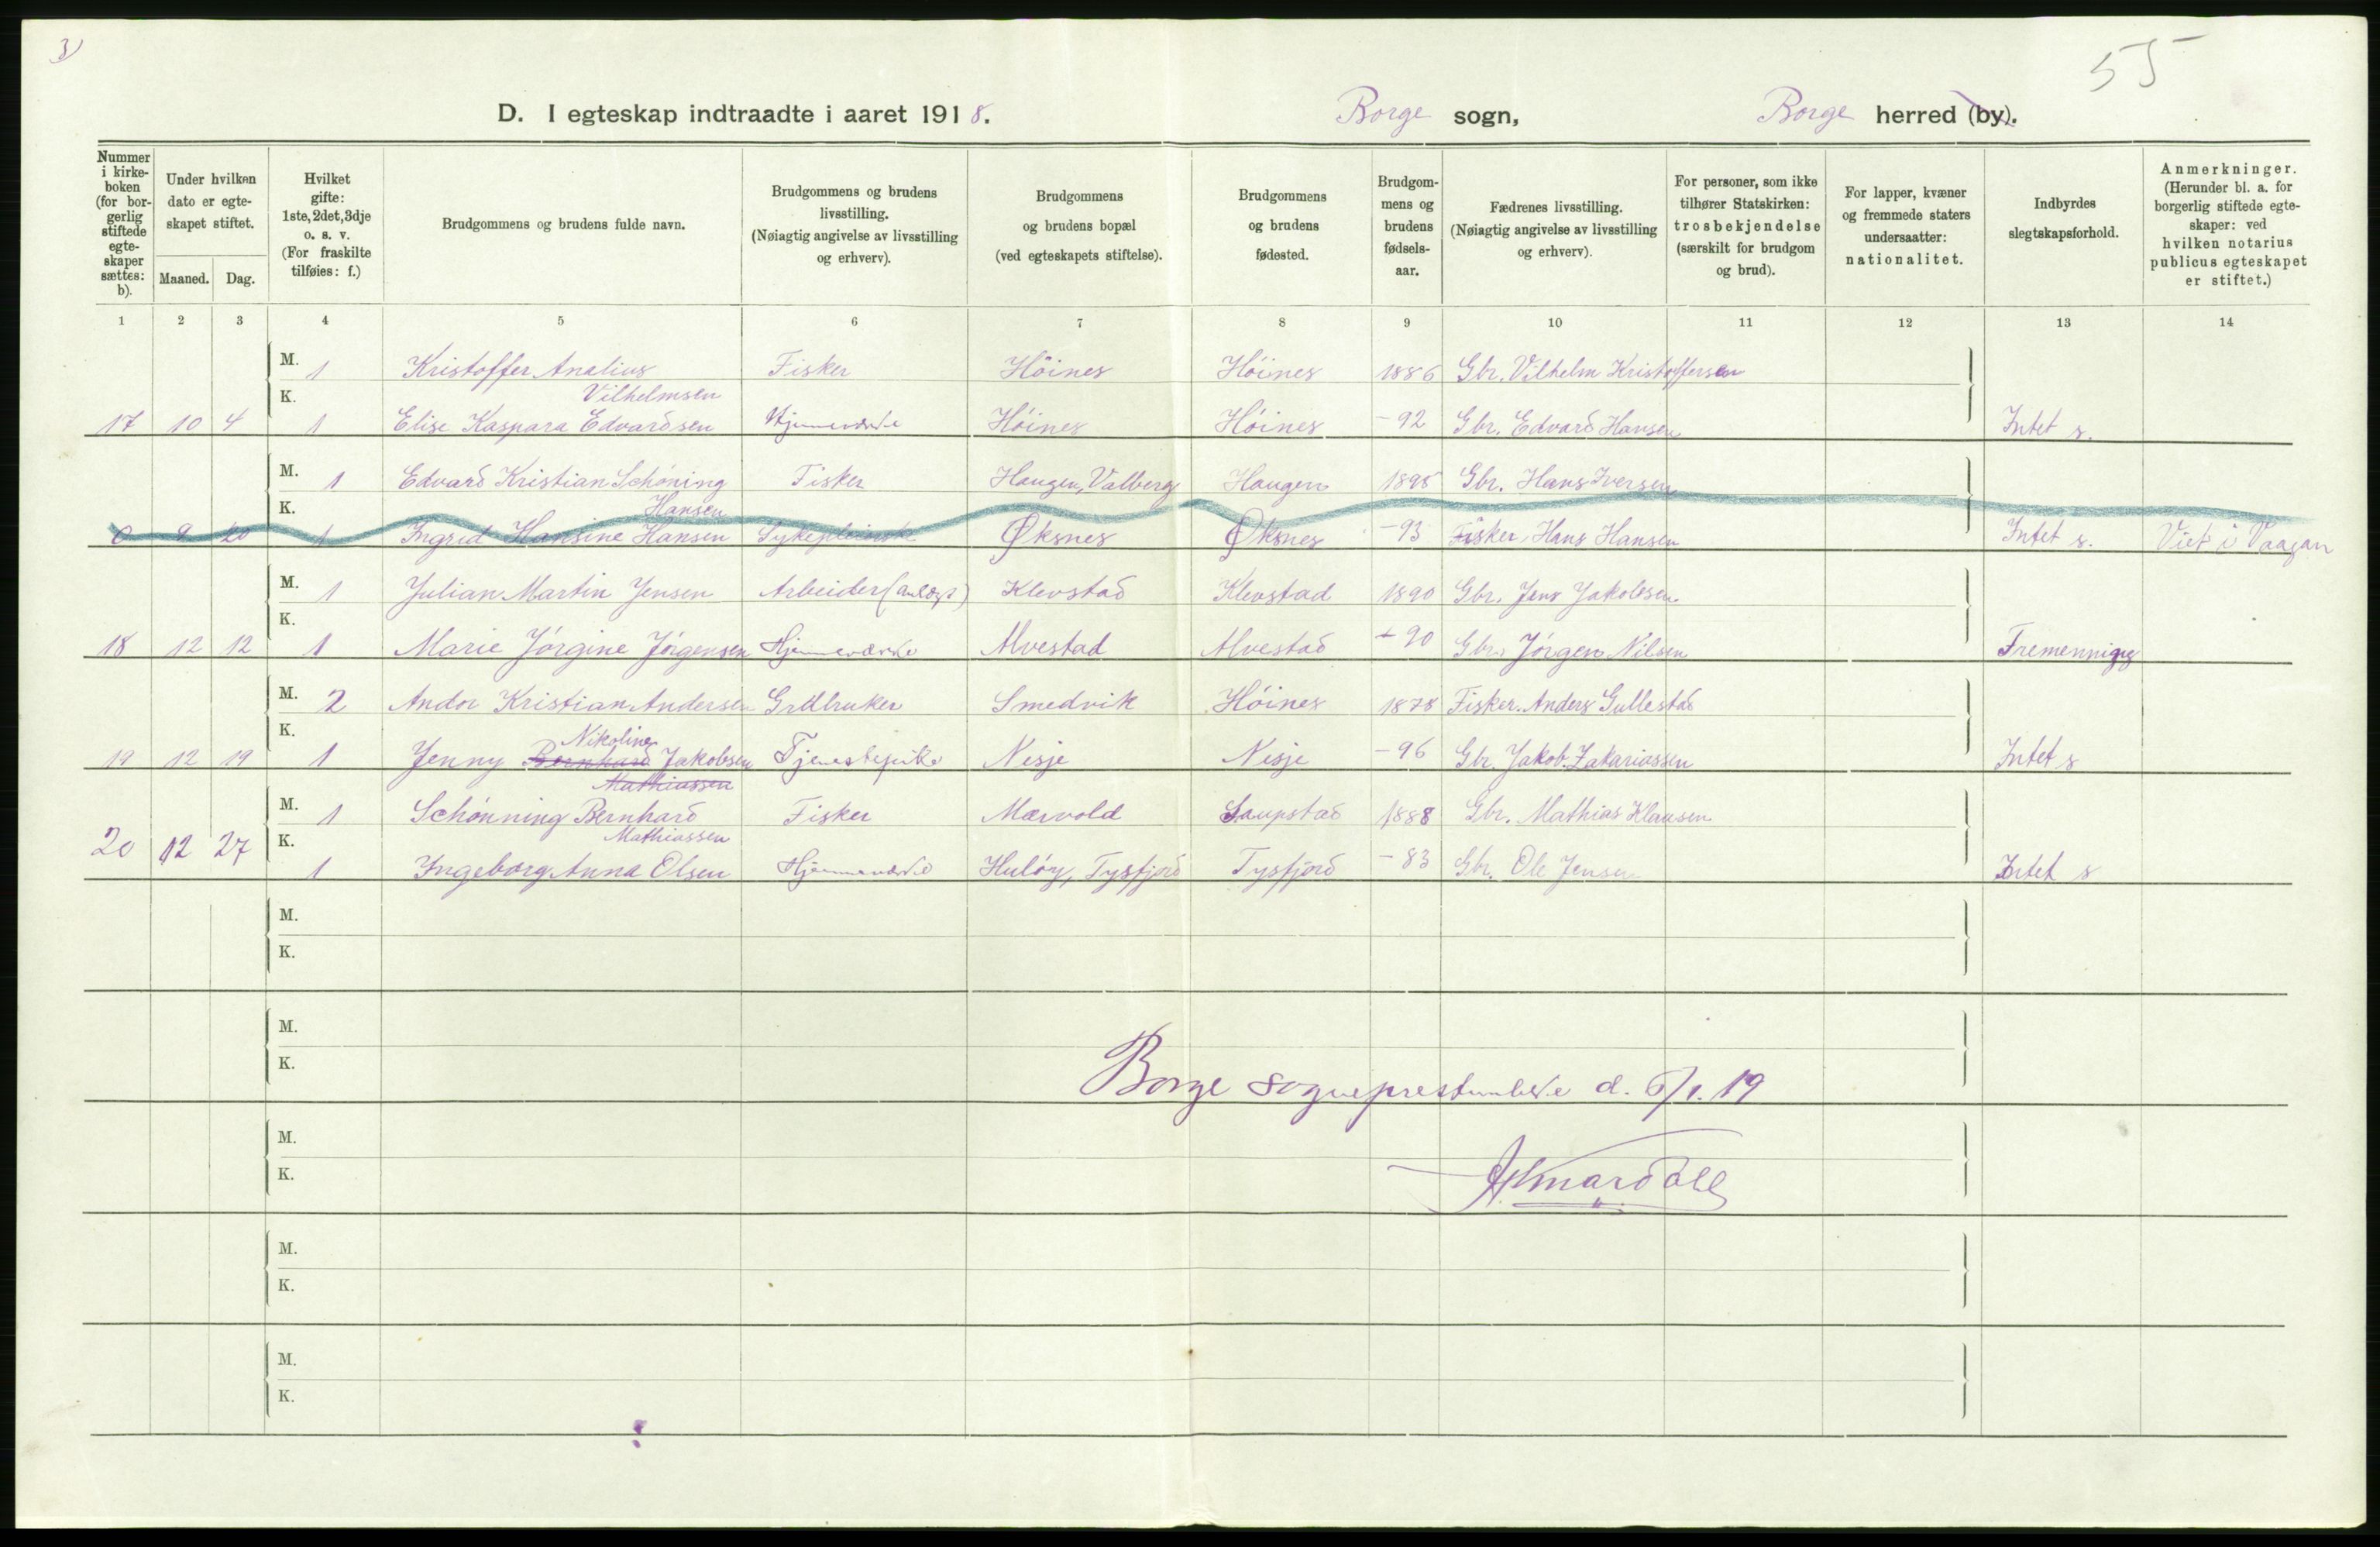 3)
55
D. I egteskap indtraadte i aaret 1918. Borge sogn, Borge herred (by).
Nummer i kirkeboken (for borgerlig stiftede egteskaper sættes: b).
Under hvilken dato er egteskapet stiftet.
Maaned. Dag.
Hvilket gifte: 1ste, 2det, 3dje o. s. v. (For fraskilte tilføies: f.)
Brudgommens og brudens fulde navn.
Brudgommens og brudens livsstilling. (Nøiagtig angivelse av livsstilling og erhverv).
Brudgommens og brudens bopæl (ved egteskapets stiftelse).
Brudgommens og brudens fødested.
Brudgommens og brudens fødselsaar.
Fædrenes livsstilling. (Nøiagtig angivelse av livsstilling og erhverv).
For personer, som ikke tilhører Statskirken: trosbekjendelse (særskilt for brudgom og brud).
For lapper, kvæner og fremmede staters undersaatter: nationalitet.
Indbyrdes slegtskapsforhold.
Anmerkninger. (Herunder bl. a. for borgerlig stiftede egteskaper: ved hvilken notarius publicus egteskapet er stiftet.)
1 2 3 4 5 6 7 8 9 10 11 12 13 14
M. 1 Kristoffer Analius Fisker Höines Höines 1886 Gbr. Vilhelm Kristoffersen
K. Vilhelmsen
17 10 4 1 Elise Kaspara Edvardsen Hjemmeværde Höines Höines -92 Gbr. Edvard Hansen Intet s.
M. 1 Edvard Kristian Schöning Fisker Haugen, Valberg Haugen 1895 Gbr. Hans Iversen
K. Hansen
0 9 20 1 Ingrid Hansine Hansen Øksnes Øksnes -93 Fisker Hans Hansen Intet s. Viet i Vaagan
M. 1 Julian Martin Jensen Arbeider (anlægs) Klevstad Klevstad 1890 Gbr. Jens Jakobsen
K.
18 12 12 1 Marie Jörgine Jörgensen Hjemmeværde Alvestad Alvestad -90 Gbr. Jörgen Nilsen Tremenning
M. 2 Andor Kristian Andersen Grdbruker Smedvik Höines 1878 Fisker Anders Gullestad
K. Nikoline
19 12 19 1 Jenny Bernhard Jakobsen Tjenestepike Nisje Nisje -96 Gbr. Jakob Zakariassen Intet s
Mathiassen
M. 1 Schönning Bernhard Fisker Mærvold Saupstad 1888 Gbr. Mathias Klausen
K. Mathiassen
20 12 27 1 Ingeborg Anna Olsen Hjemmeværde Hulöy, Tysfjord Tysfjord -83 Gbr. Ole Jensen Intet s
M.
K.
M.
K.
Borge sogneprestembede d. 6/1. 19
M.
K.
M.
K.
M.
K.